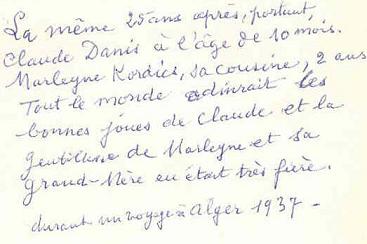 La même 25 ans après, portant,
Claude Danis à l'âge de 10 mois.
Marleyne Kordics, sa cousine, 2 ans
Tout le monde admirait les
bonnes joues de Claude et la
gentillesse de Marleyne et sa
grand-Mère en était très fière.
durant un voyage à Alger 1937 -